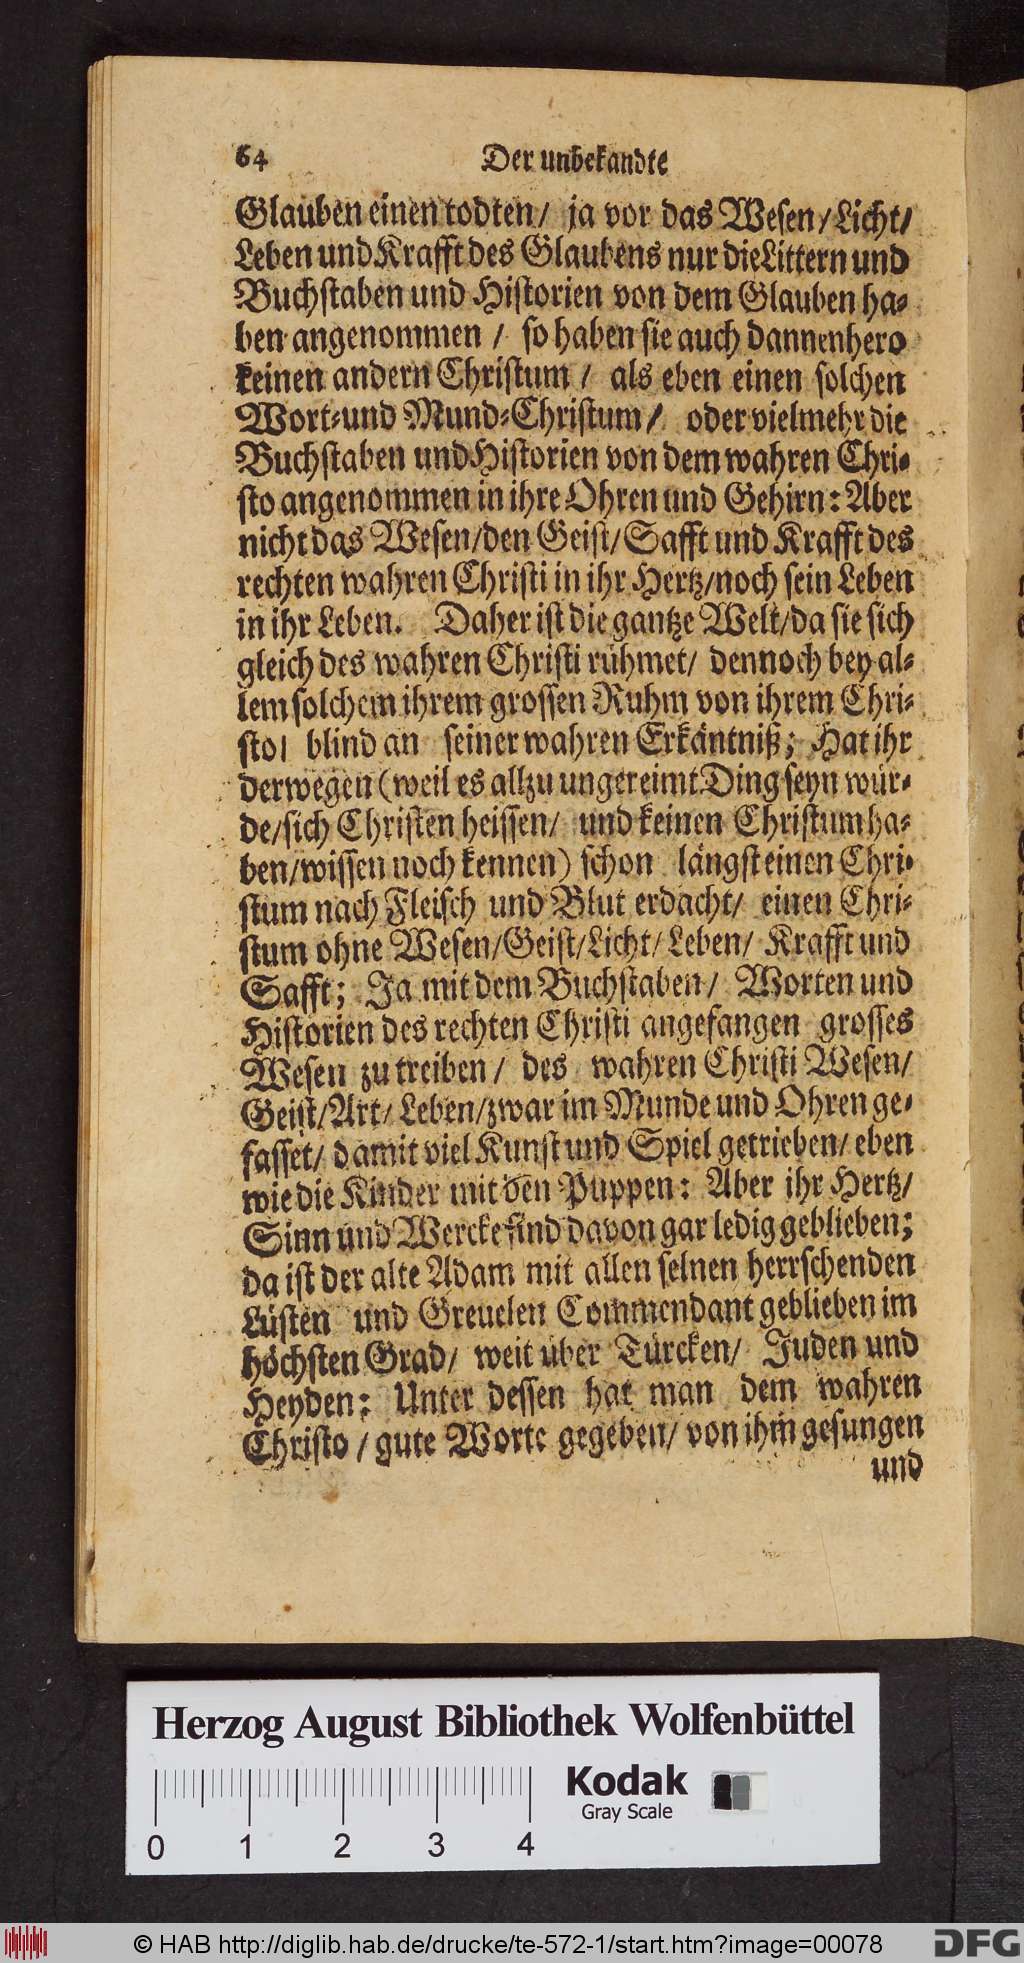 64 Der unbekandte
Glauben einen todten/ ja vor das Wesen/Licht/
Leben und Krafft des Glaubens nur die Littern und
Buchstaben und Historien von dem Glauben ha-
ben angenommen / so haben sie auch dannenhero
keinen andern Christum / als eben einen solchen
Wort-und Mund-Christum/ oder vielmehr die
Buchstaben und Historien von dem wahren Chri-
sto angenommen in ihre Ohren und Gehirn: Aber
nicht das Wesen/den Geist/Safft und Krafft des
rechten wahren Christi in ihr Hertz/noch sein Leben
in ihr Leben. Daher ist die gantze Welt/da sie sich
gleich des wahren Christi rühmet/ dennoch bey al-
lem solchem ihrem grossen Ruhm von ihrem Chri-
sto/ blind an seiner wahren Erkäntniß; Hat ihr
derwegen (weil es allzu ungereimt Ding seyn wür-
de/sich Christen heissen/ und keinen Christum ha-
ben/wissen noch kennen) schon längst einen Chri-
stum nach Fleisch und Blut erdacht/ einen Chri-
stum ohne Wesen/Geist/Licht/Leben/ Krafft und
Safft; Ja mit dem Buchstaben/ Worten und
Historien des rechten Christi angefangen grosses
Wesen zu treiben/ des wahren Christi Wesen/
Geist/Art/Leben/zwar im Munde und Ohren ge-
fasset/ damit viel Kunst und Spiel getrieben/ eben
wie die Kinder mit den Puppen: Aber ihr Hertz/
Sinn und Wercke sind davon gar ledig geblieben;
da ist der alte Adam mit allen seinen herrschenden
Lüsten und Greuelen Commendant geblieben im
höchsten Grad/ weit über Türcken/ Juden und
Heyden: Unter dessen hat man dem wahren
Christo/gute Worte gegeben/ von ihm gesungen
und
Herzog August Bibliothek Wolfenbüttel
0 1 2 3 4
Kodak
Gray Scale
© HAB http://diglib.hab.de/drucke/te-572-1/start.htm?image=00078
DFG